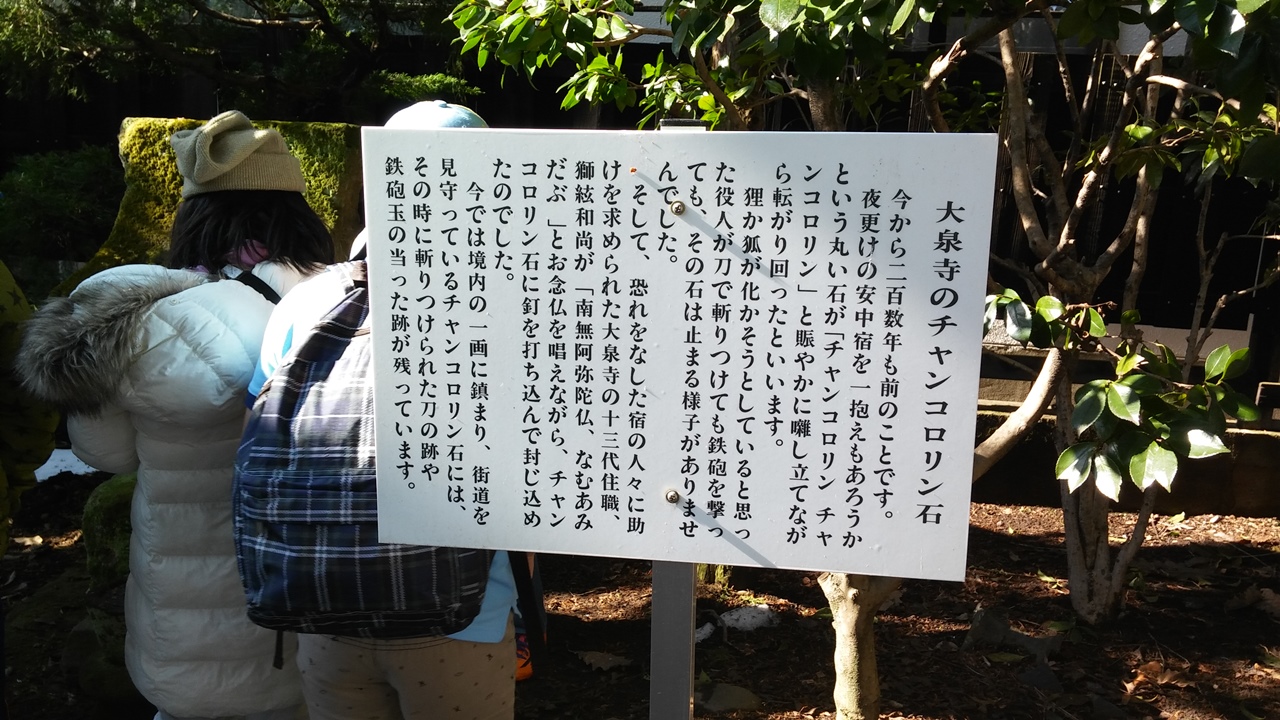 大泉寺のチャンコロリン石
今から二百数年も前のことです。
夜更けの安中宿を一抱えもあろうか
という丸い石が「チャンコロリン チャ
ンコロリン」と賑やかに囃し立てなが
ら転がり回ったといいます。
狸か狐が化かそうとしていると思っ
た役人が刀で斬りつけても鉄砲を撃っ
ても、その石は止まる様子がありませ
んでした。
そして、恐れをなした宿の人々に助
けを求められた大泉寺の十三代住職、
獅絃和尚が「南無阿弥陀仏、なむあみ
だぶ」とお念仏を唱えながら、チャン
コロリン石に釘を打ち込んで封じ込め
たのでした。
今では境内の一画に鎮まり、街道を
見守っているチャンコロリン石には、
その時に斬りつけられた刀の跡や
鉄砲玉の当った跡が残っています。